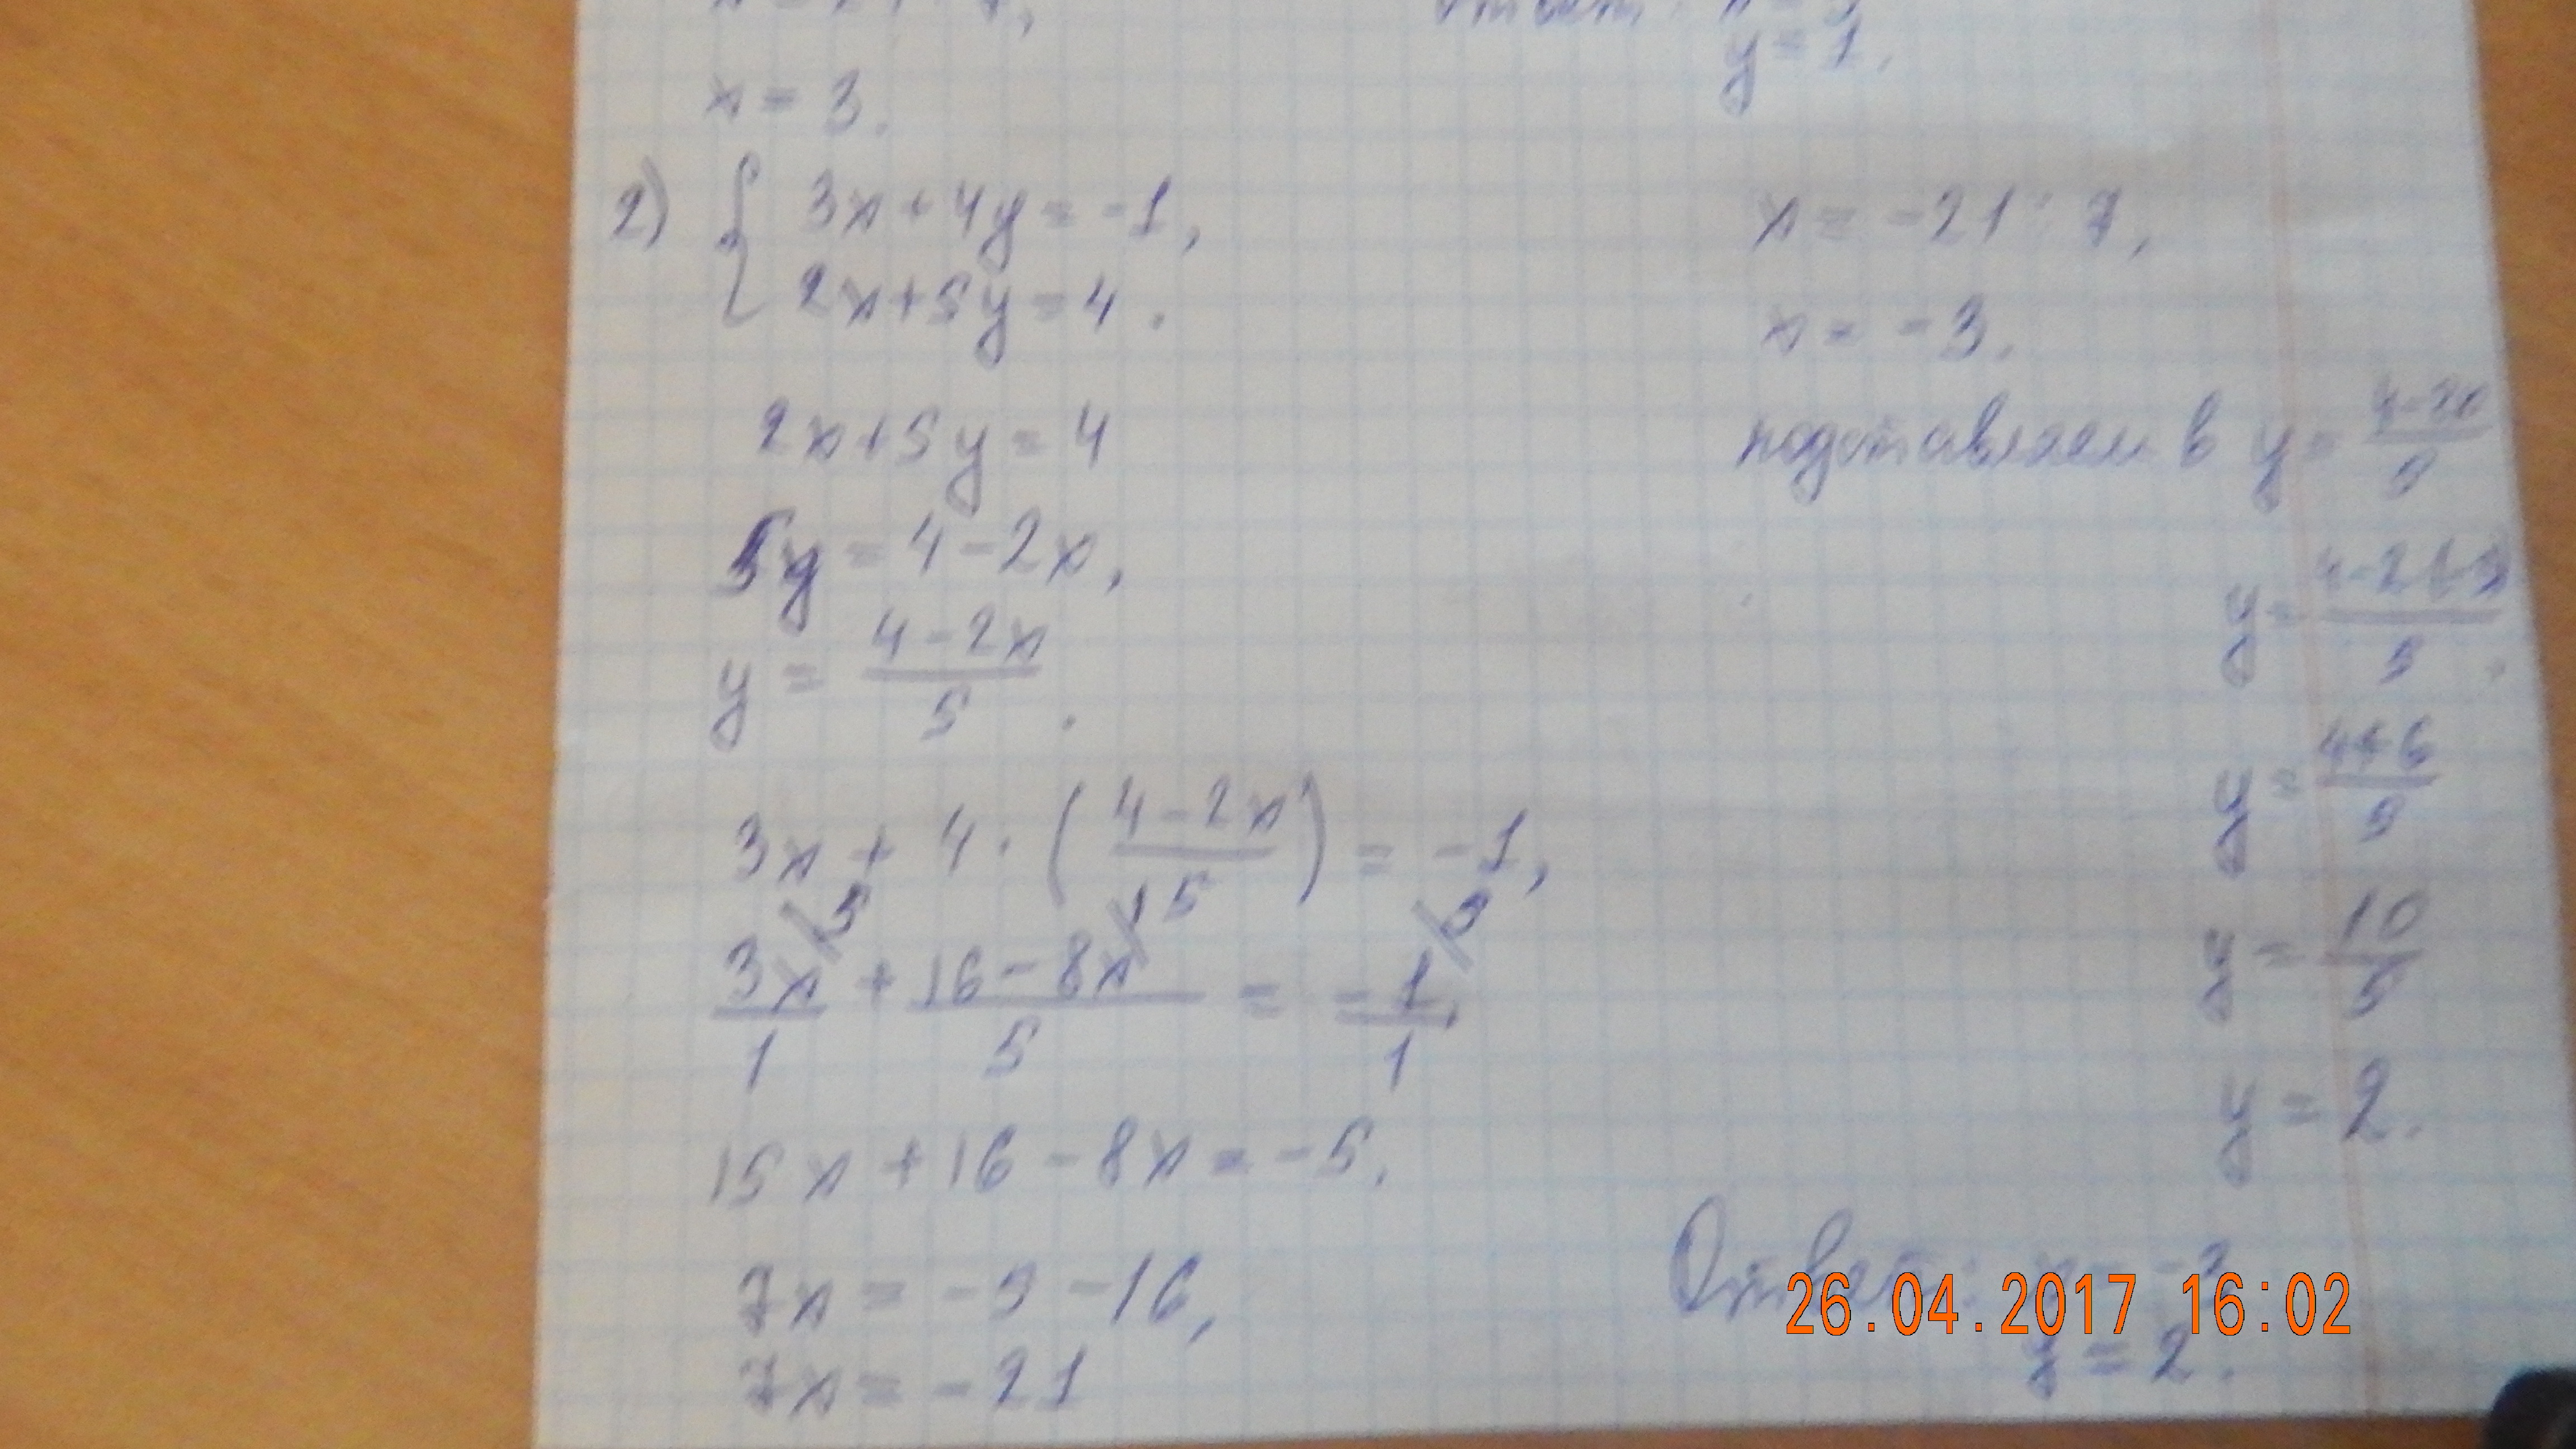 x = 3.
y = 1.
2) { 3x + 4y = -1,
2x + 5y = 4.
2x + 5y = 4
5y = 4 - 2x,
y = (4 - 2x)/5.
3x + 4 · ((4 - 2x)/5) = -1,
3x/1 \5 + (16 - 8x)/5 \1 = -1/1 \5,
15x + 16 - 8x = -5,
7x = -5 - 16,
7x = -21
x = -21 : 7,
x = -3.
подставляем в y = (4 - 2x)/5
y = (4 - 2(-3))/5
y = (4 + 6)/5
y = 10/5
y = 2.
Ответ: x = -3
y = 2.
26.04.2017 16:02